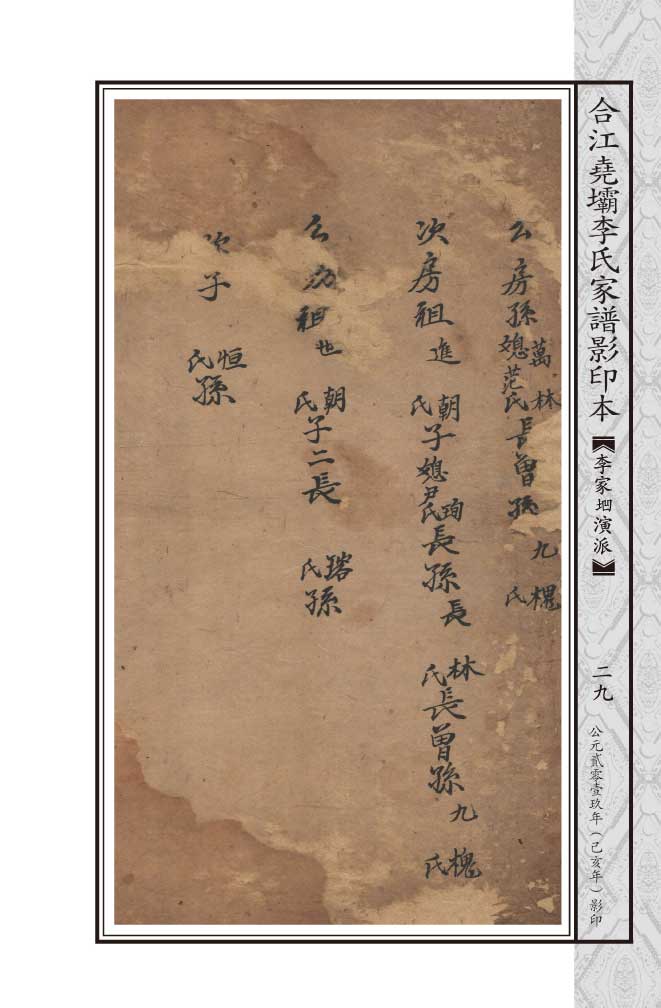 合江堯壩李氏家譜影印本
【李家𡊣演派】
二九
公元貳零壹玖年（己亥年）影印
公房孫萬林媳范氏長曾孫九槐氏
次房祖進朝氏子媳尹氏珣長孫長林氏長曾孫九槐氏
公房祖世朝氏子二長瑢氏孫
次子恒氏孫